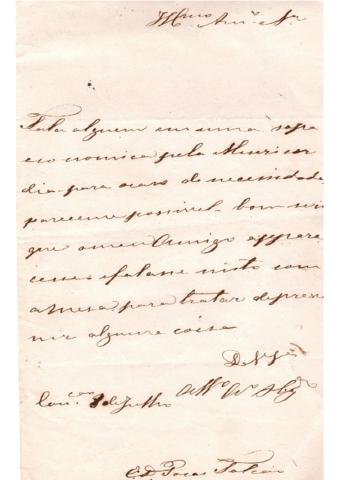 Illmo Amo e Sr
Fala alguem em uma sopa
economica pela Misericor
dia para caso de necessidade
parece me possivel - bom seria
que o meu Amigo appare
cesse e falasse nisto com
a Mesa para tratar de preve
nir alguma coisa
De V. Sa
8 de Julho